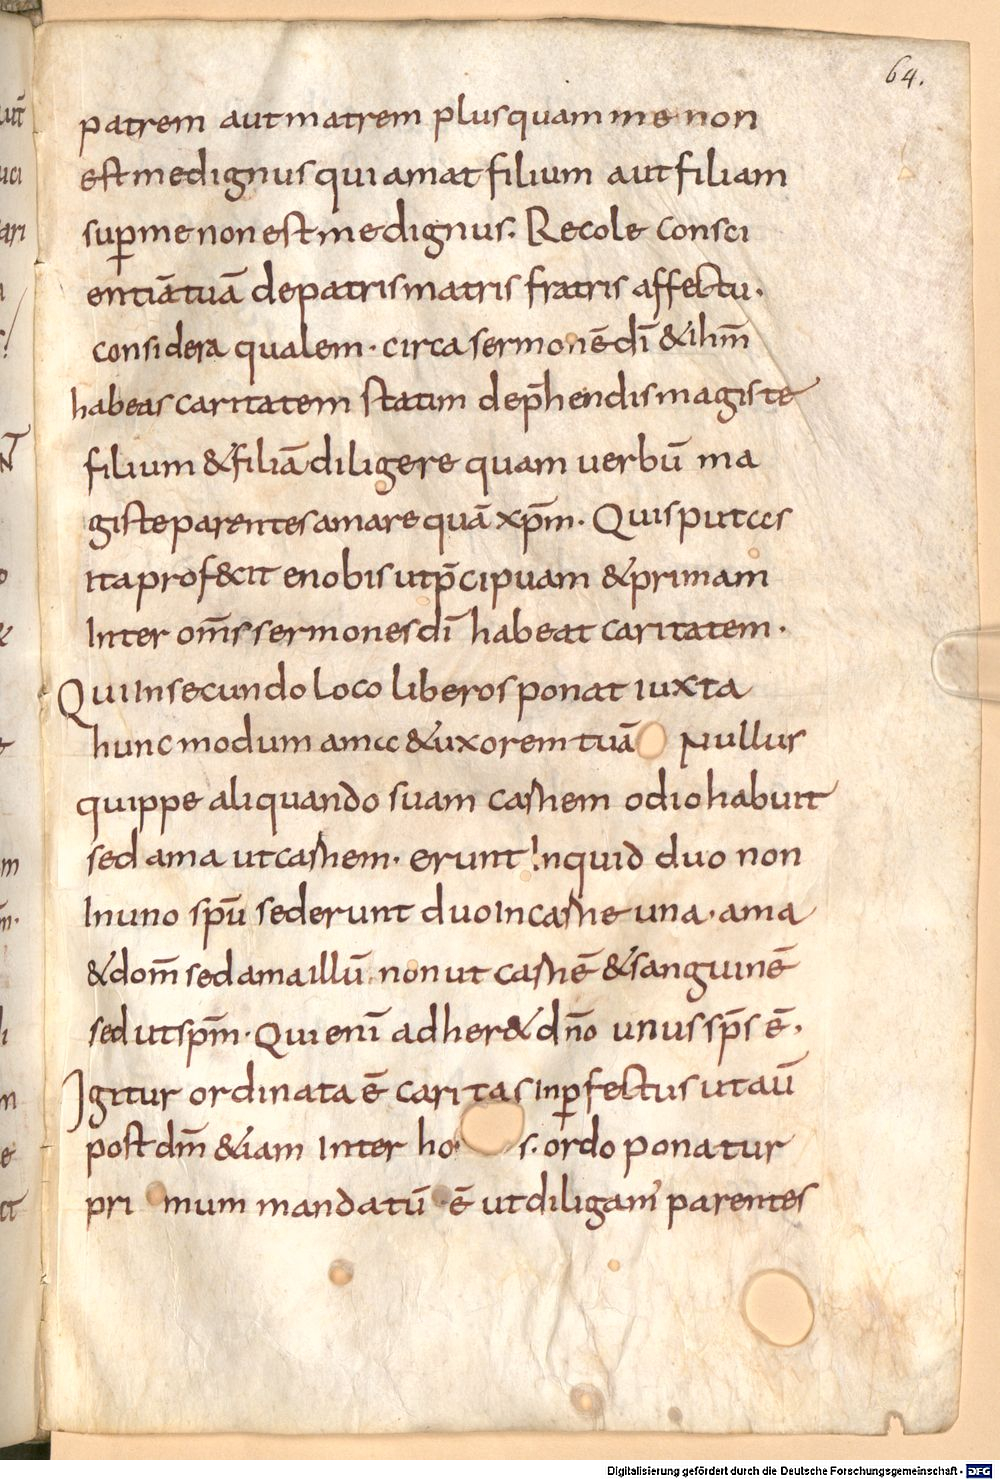 64.
patrem aut matrem plus quam me non
est me dignus qui amat filium aut filiam
sup̱ me non est me dignus. Recole consci
entiā tuā de patris matris fratris affectu.
considera qualem. circa sermonē dī & ihm̄
habeas caritatem statim dep̄hendis magis te
filium & filiā diligere quam uerbū ma
gis te parentes amare quā xp̄m. Quis putas
ita profecit e nobis ut p̄cipuam & primam
Inter om̄s sermones dī habeat caritatem.
Qui In secundo loco liberos ponat iuxta
hunc modum ama & uxorem tuā Nullus
quippe aliquando suam carnem odio habuit
sed ama ut carnem. erunt Inquid duo non
In uno spū sed erunt duo In carne una. ama
& dom̄ sed ama illū non ut carnē & sanguinē
sed ut spm̄. Qui enī adher& dn̄o unus sps̄ ē.
Igitur ordinata ē caritas In p̱fectus ut aū
post dm̄ &iam Inter hos. ordo ponatur
primum mandatū ē ut diligam' parentes
Digitalisierung gefördert durch die Deutsche Forschungsgemeinschaft - DFG